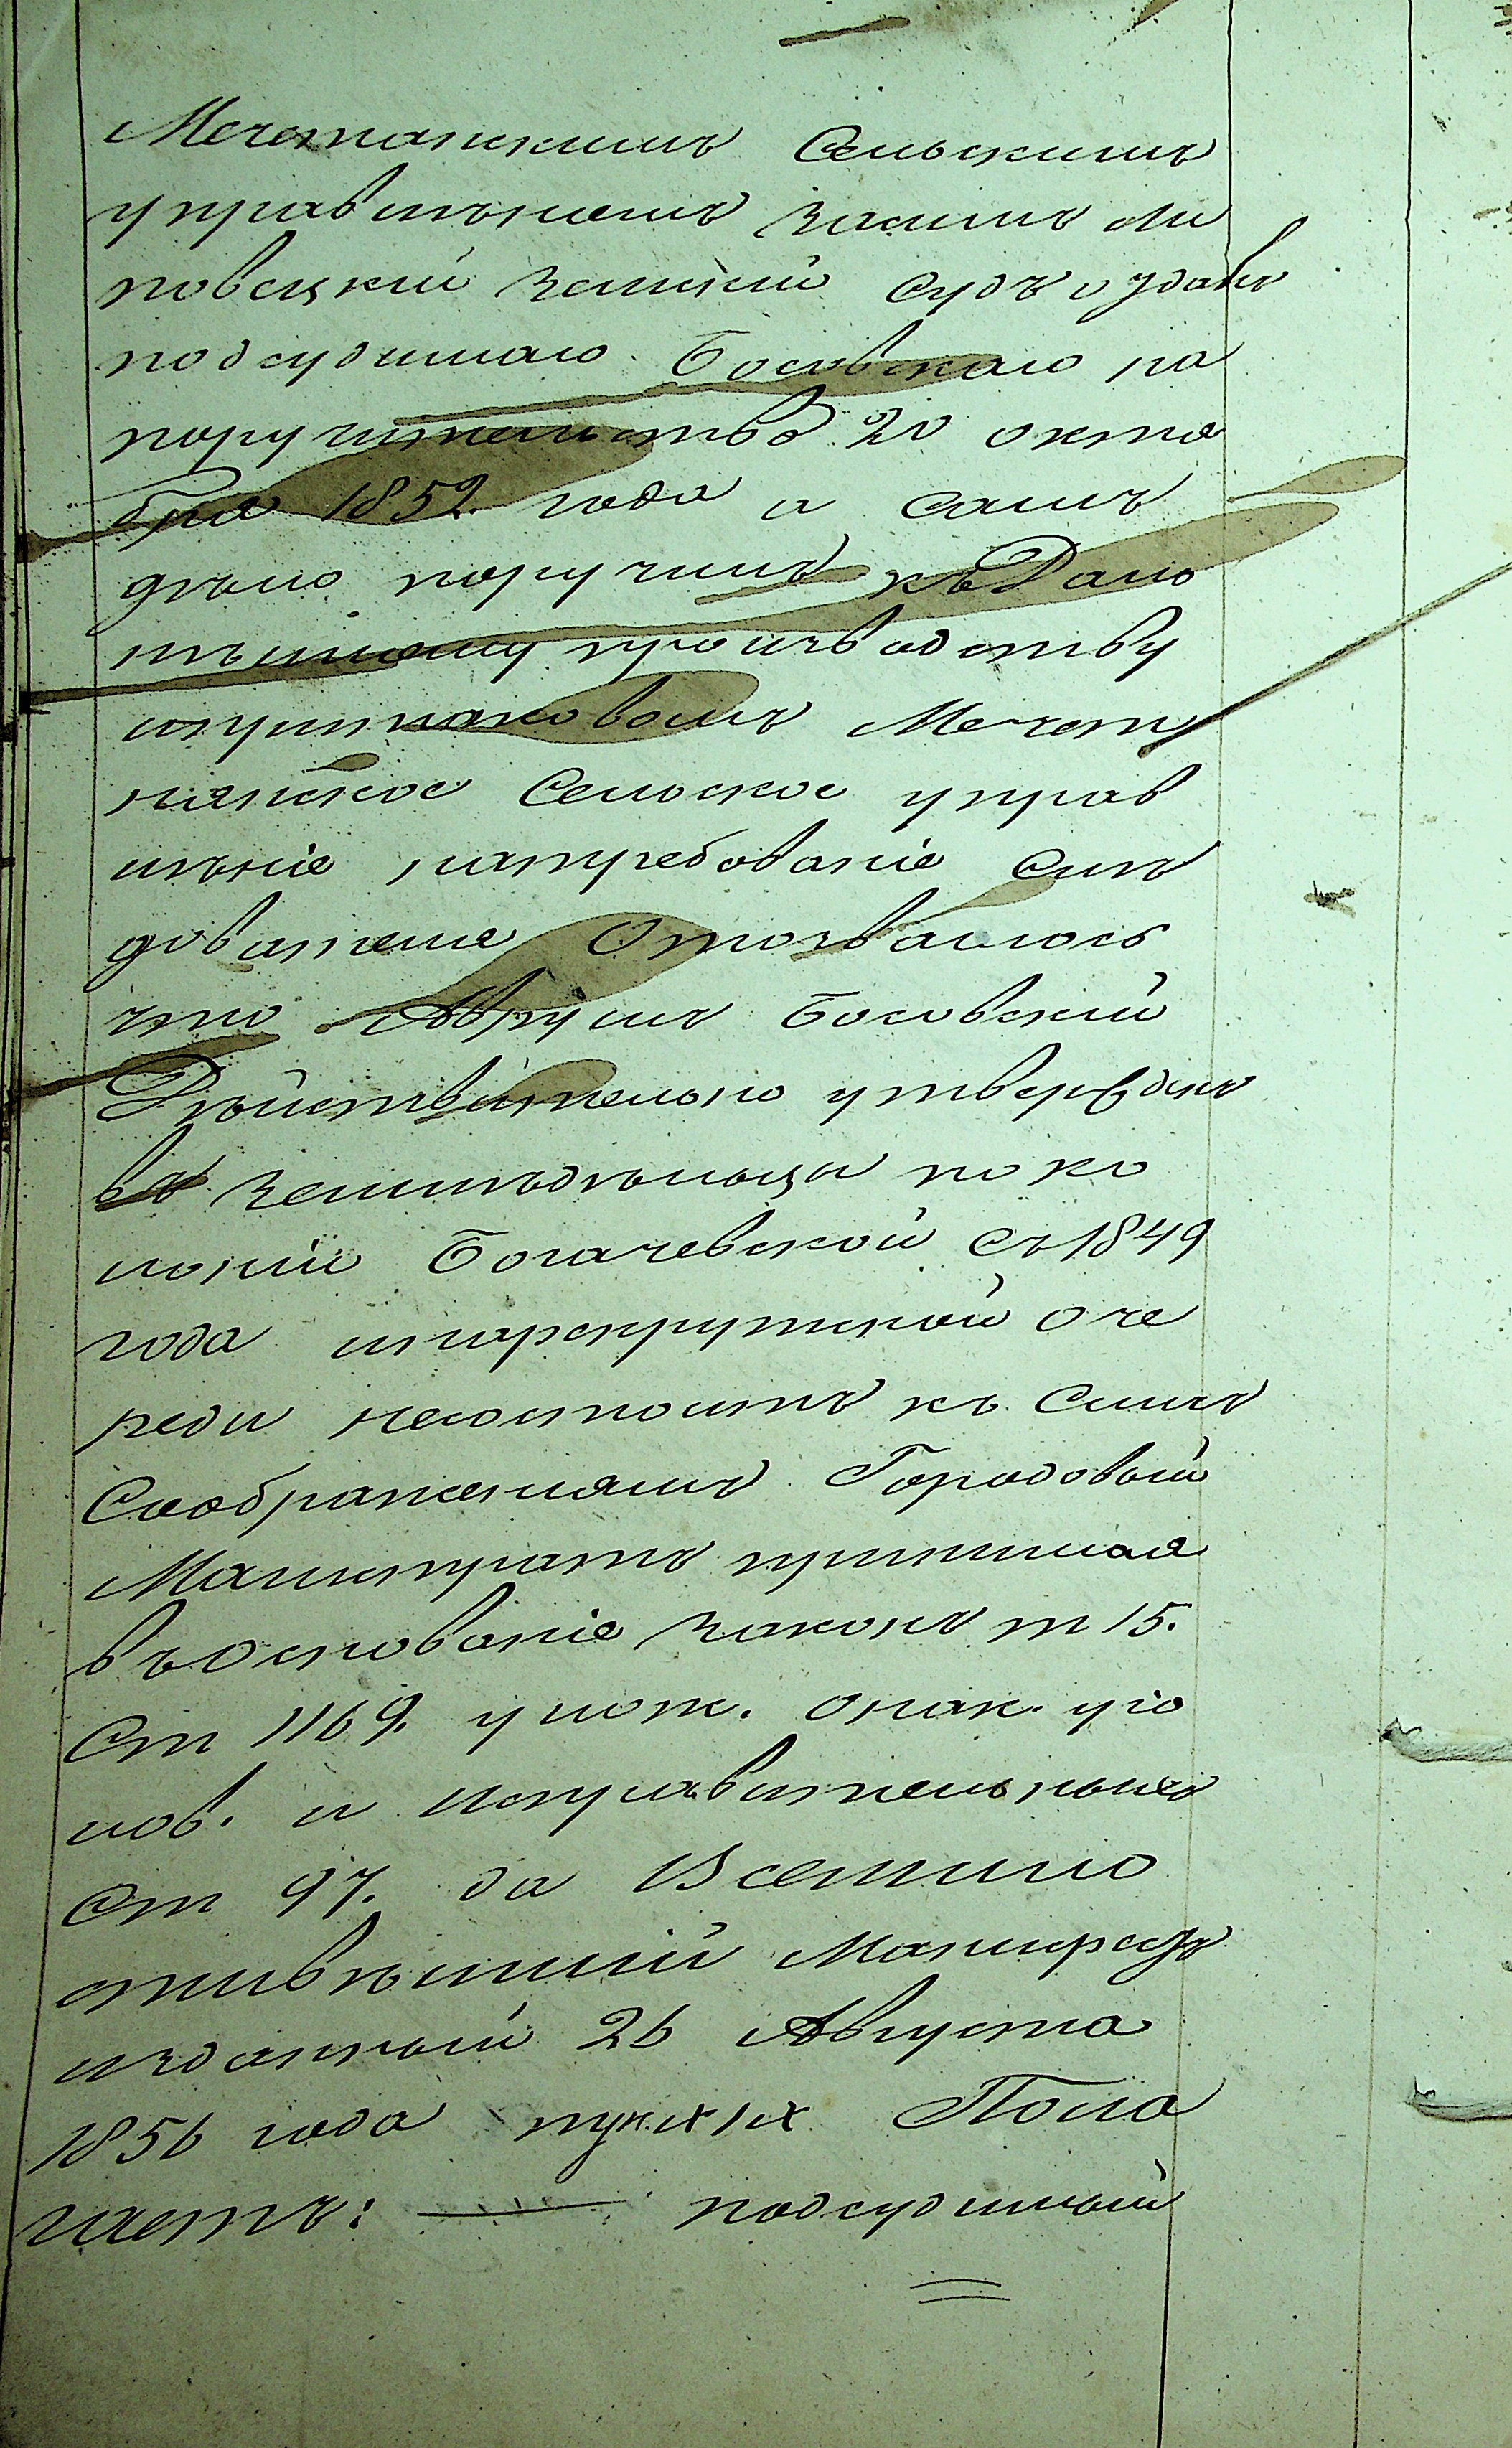 Мечетнянскимъ Сельскимъ
управленіемъ зачемъ ли
повецкій земскій судъ оздавъ
подсудимаго Босовскаго на
поручительство 20 октя
бря 1852 года а самъ
дѣло поручилъ къ Даль
нѣйшему производству
Мечет
нянское Сельское управ
лѣніе натребованіе слѣ
дователя Отозвалось
что Аврумъ Босовскій
Дѣйствительно утвержденъ
въ земледѣльцы по ко
лоніи Богачевской съ 1849
года инарекрутской оче
реди несостоитъ къ симъ
Соображеніямъ Городовый
Магистратъ принимая
въ основаніе законъ т 15.
Ст 1169. улож. онак. уго
лов. и исправительныхъ
Ст 97. да Всемило
стивѣйшій Манифестъ
изданный 26 Августа
1856 года пун. IX Пола
гаетъ: — подсудимый